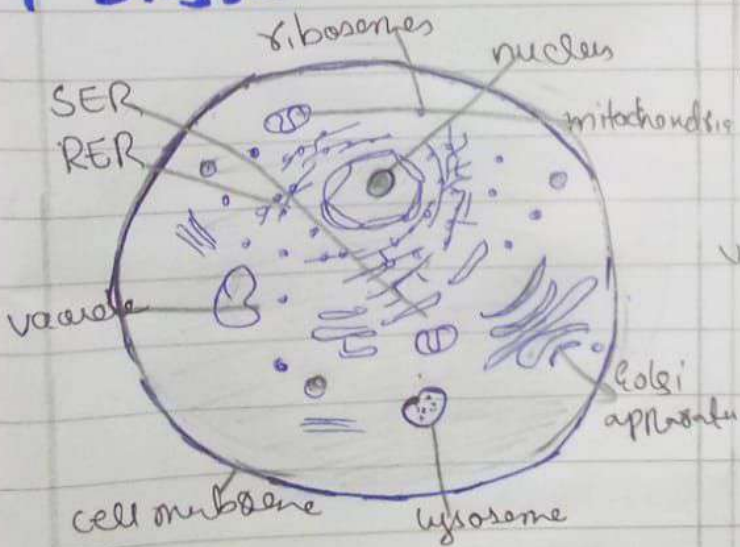 ribosomes
nucleus
SER
mitochondria
RER
vacuole
Golgi
apparatu
cell membrane
lysosome